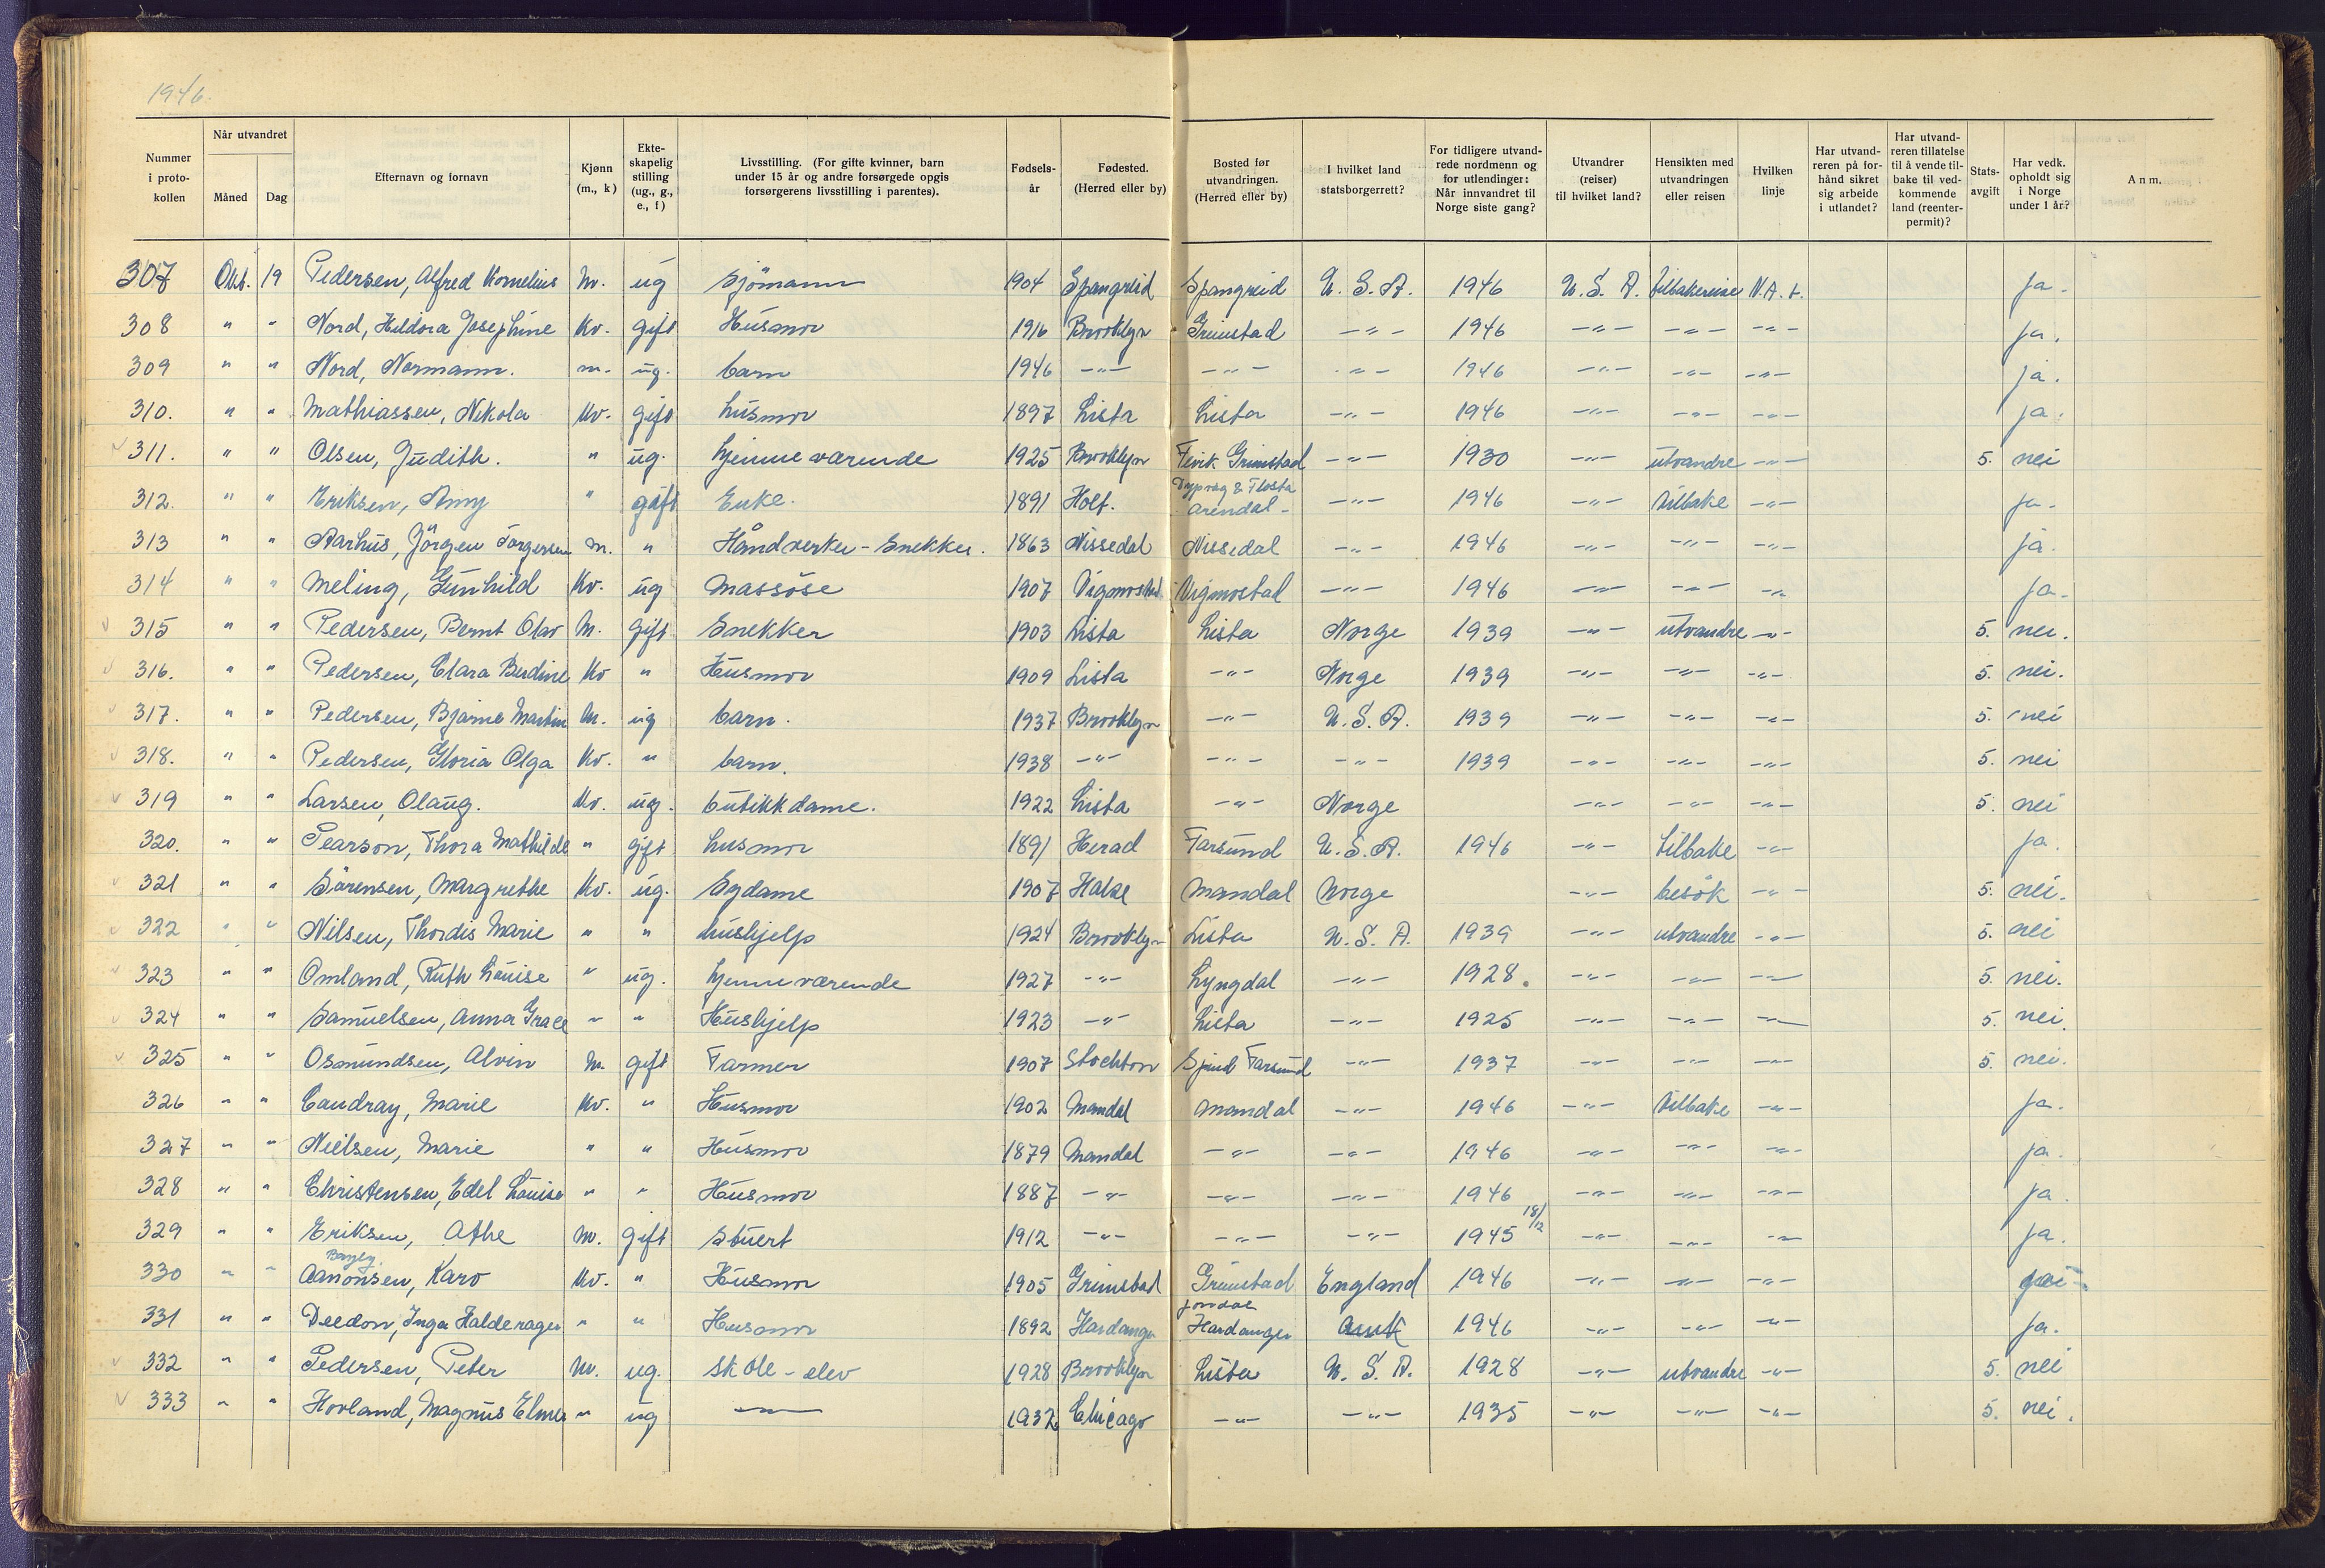 1946.
Nummer i protokollen | Når utvandret Måned | Dag | Efternavn og fornavn | Kjønn (m., k) | Ekteskapelig stilling (ug., g., e., f) | Livsstilling. (For gifte kvinner, barn under 15 år og andre forsørgede opgis forsørgerens livsstilling i parentes). | Fødselsår | Fødested. (Herred eller by) | Bosted før utvandringen. (Herred eller by) | I hvilket land statsborgerrett? | For tidligere utvandrede nordmenn og for utlendinger: Når innvandret til Norge siste gang? | Utvandrer (reiser) til hvilket land? | Hensikten med utvandringen eller reisen | Hvilken linje | Har utvandreren på forhånd sikret sig arbeide i utlandet? | Har utvandreren tillatelse til å vende tilbake til vedkommende land (reenterpermit)? | Statsavgift | Har vedk. opholdt sig i Norge under 1 år? | Anm.
307 Okt. 19 Pedersen, Alfred Kornelius M. ug Sjömann 1904 Spangreid Spangreid U.S.A. 1946 U.S.A. tilbakereise N.A.L. ja.
308 " " Nord, Heldora Josephine Kv. gift Husmor 1916 Brooklyn Grimstad -"- 1946 -"- -"- -"- ja.
309 " " Nord, Normann. m. ug. barn 1946 -"- -"- -"- 1946 -"- -"- -"- ja.
310. " " Mathiassen, Nikola Kv. gift husmor 1897 Lista Lista -"- 1946 -"- -"- -"- ja.
311. " " Olsen, Judith. " ug. hjemmeværende 1925 Brooklyn Fevik Grimstad -"- 1930 -"- utvandre -"- 5. nei
312. " " Eriksen, Amy " gift Enke. 1891 Holt. Dypvåg & Flosta Arendal - -"- 1946 -"- tilbake -"- ja.
313 " " Aarhus, Jörgen Torgersen m. " Håndverker - Snekker. 1863 Nissedal Nissedal -"- 1946 -"- -"- -"- ja.
314 " " Meling, Gunhild Kv. ug Massöse 1907 Vigmostad Vigmostad -"- 1946 -"- -"- -"- ja.
315 " " Pedersen, Bernt Olav M. gift Snekker 1903 Lista Lista Norge 1939 -"- utvandre -"- 5. nei.
316. " " Pedersen, Clara Berdine Kv " Husmor 1909 Lista -"- Norge 1939 -"- -"- -"- 5. nei.
317. " " Pedersen, Bjarne Martin M. ug barn. 1937 Brooklyn -"- U.S.A. 1939 -"- -"- -"- 5. nei
318. " " Pedersen, Gloria Olga Kv. " barn. 1938 -"- -"- -"- 1939 -"- -"- -"- 5. nei
319 " " Larsen, Olaug. Kv. ug. butikkdame. 1922 Lista -"- Norge -"- -"- -"- 5. nei
320. " " Pearson, Thora Mathilde " gift husmor 1891 Herad Farsund U.S.A. 1946 -"- tilbake -"- ja.
321 " " Sörensen, Margrethe Kv. ug. Sydame 1907 Halse Mandal Norge -"- besök -"- 5. nei.
322 " " Nilsen, Thordis Marie " " hushjelp 1924 Brooklyn Lista U.S.A. 1939 -"- utvandre -"- 5. nei
323 " " Omland, Ruth Louise " ug. hjemmeværende 1927 -"- Lyngdal -"- 1928. -"- -"- -"- 5. nei.
324 " " Samuelsen, Anna Grace " " Hushjelp 1923 -"- Lista -"- 1925 -"- -"- -"- 5. nei.
325 " " Osmundsen, Alvin M. gift Farmer 1907 Stockton Spind Farsund -"- 1937 -"- -"- -"- 5. nei.
326 " " Caudray, Marie Kv. " Husmor 1902 Mandal Mandal -"- 1946 -"- tilbake -"- ja.
327 " " Nielsen, Marie " " Husmor 1879 Mandal -"- -"- 1946 -"- -"- -"- ja.
328 " " Christensen, Edel Louise " " Husmor 1887 -"- -"- -"- 1946 -"- -"- -"- ja.
329 " " Eriksen, Athe M. gift Stuert 1912 -"- -"- -"- 1945 18/12 -"- -"- -"- ja.
330 " " Aanonsen, Karo Kv. " Husmor 1905 Grimstad Grimstad England 1946 -"- -"- -"-
331 " " Deedon, Inga Halderager " " Husmor 1892 Hardanger Jondal Hardanger 1946 -"- -"- -"- ja.
332 " " Pedersen, Peter M. ug. skole-elev 1928 Brooklyn Lista U.S.A. 1928 -"- utvandre -"- 5. nei
333 " " Hovland, Magnus Elmer " ug -"- 1932 Chicago -"- -"- 1935 -"- -"- -"- 5. nei.